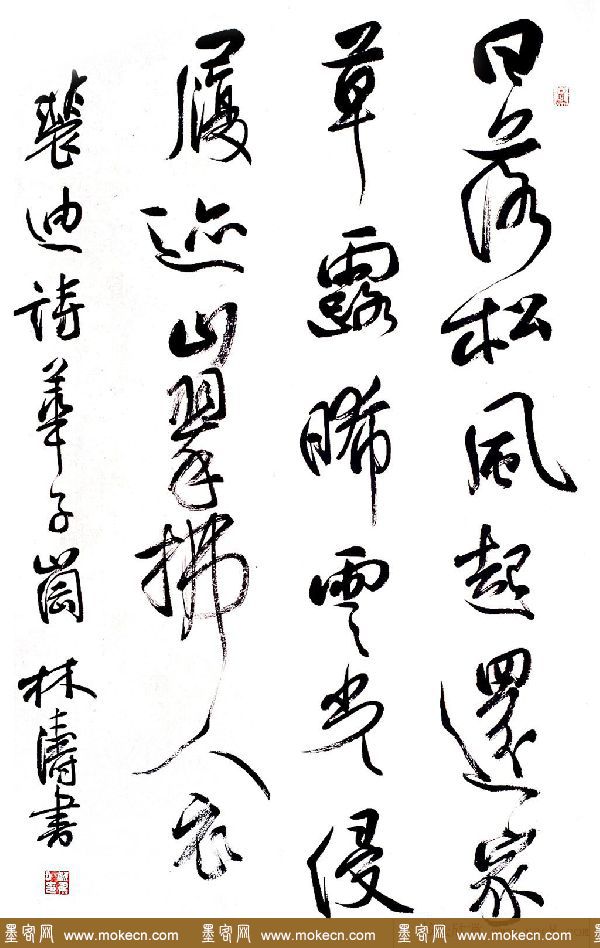 日落松風起還家
草露晞雲光侵
履迹山翠拂人衣
裴迪詩華子崗 林濤書
墨客网 www.mokecn.com 墨客网 www.mokecn.com 墨客网 www.mokecn.com